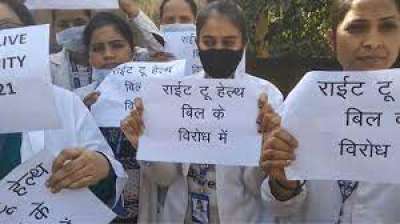 LIVE
ITY
21
राईट टू हेल्थ
राईट टू हेल्थ
बिल के
विरोध में
राईट टू
बिल
विरोध
हेल्थ